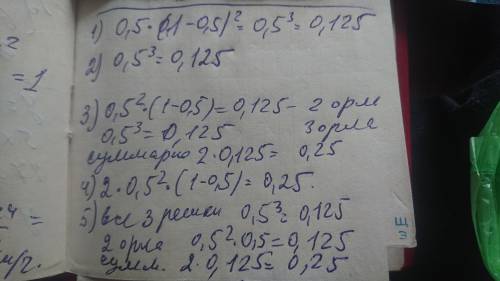 1) 0,5·(1-0,5)²=0,5³=0,125
2) 0,5³=0,125
=1
3) 0,5²·(1-0,5)=0,125- 2 орл
0,5³= 0,125 3 орла
суммарно 2·0,125= 0,25
4) 2·0,5²·(1-0,5)=0,25.
5) все 3 решки 0,5³=0,125
2 орла 0,5²·0,5=0,125
сумм. 2·0,125= 0,25